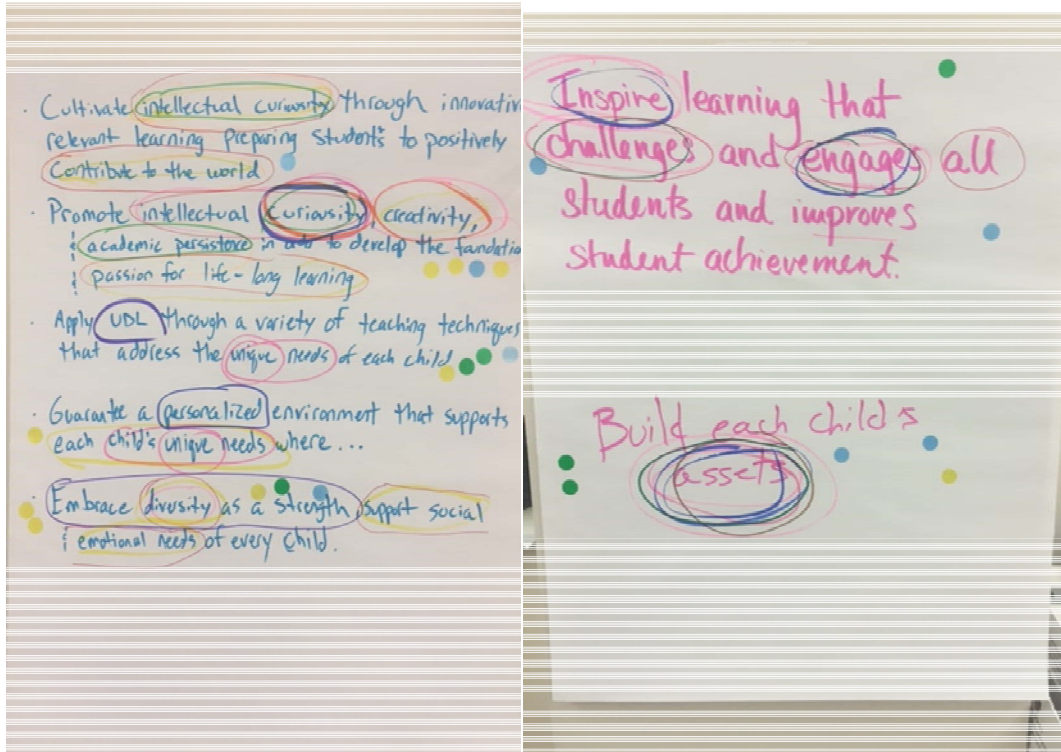 · Cultivate intellectual curiosity through innovativ
relevant learning preparing students to positively
contribute to the world
· Promote intellectual curiosity, creativity,
& academic persistence in to develop the foundatio
& passion for life-long learning
· Apply UDL through a variety of teaching techniques
that address the unique needs of each child
· Guarantee a personalized environment that supports
each child's unique needs where...
· Embrace diversity as a strength, support social
& emotional needs of every child.
Inspire learning that
challenges and engages all
students and improves
student achievement.
Build each child's
assets